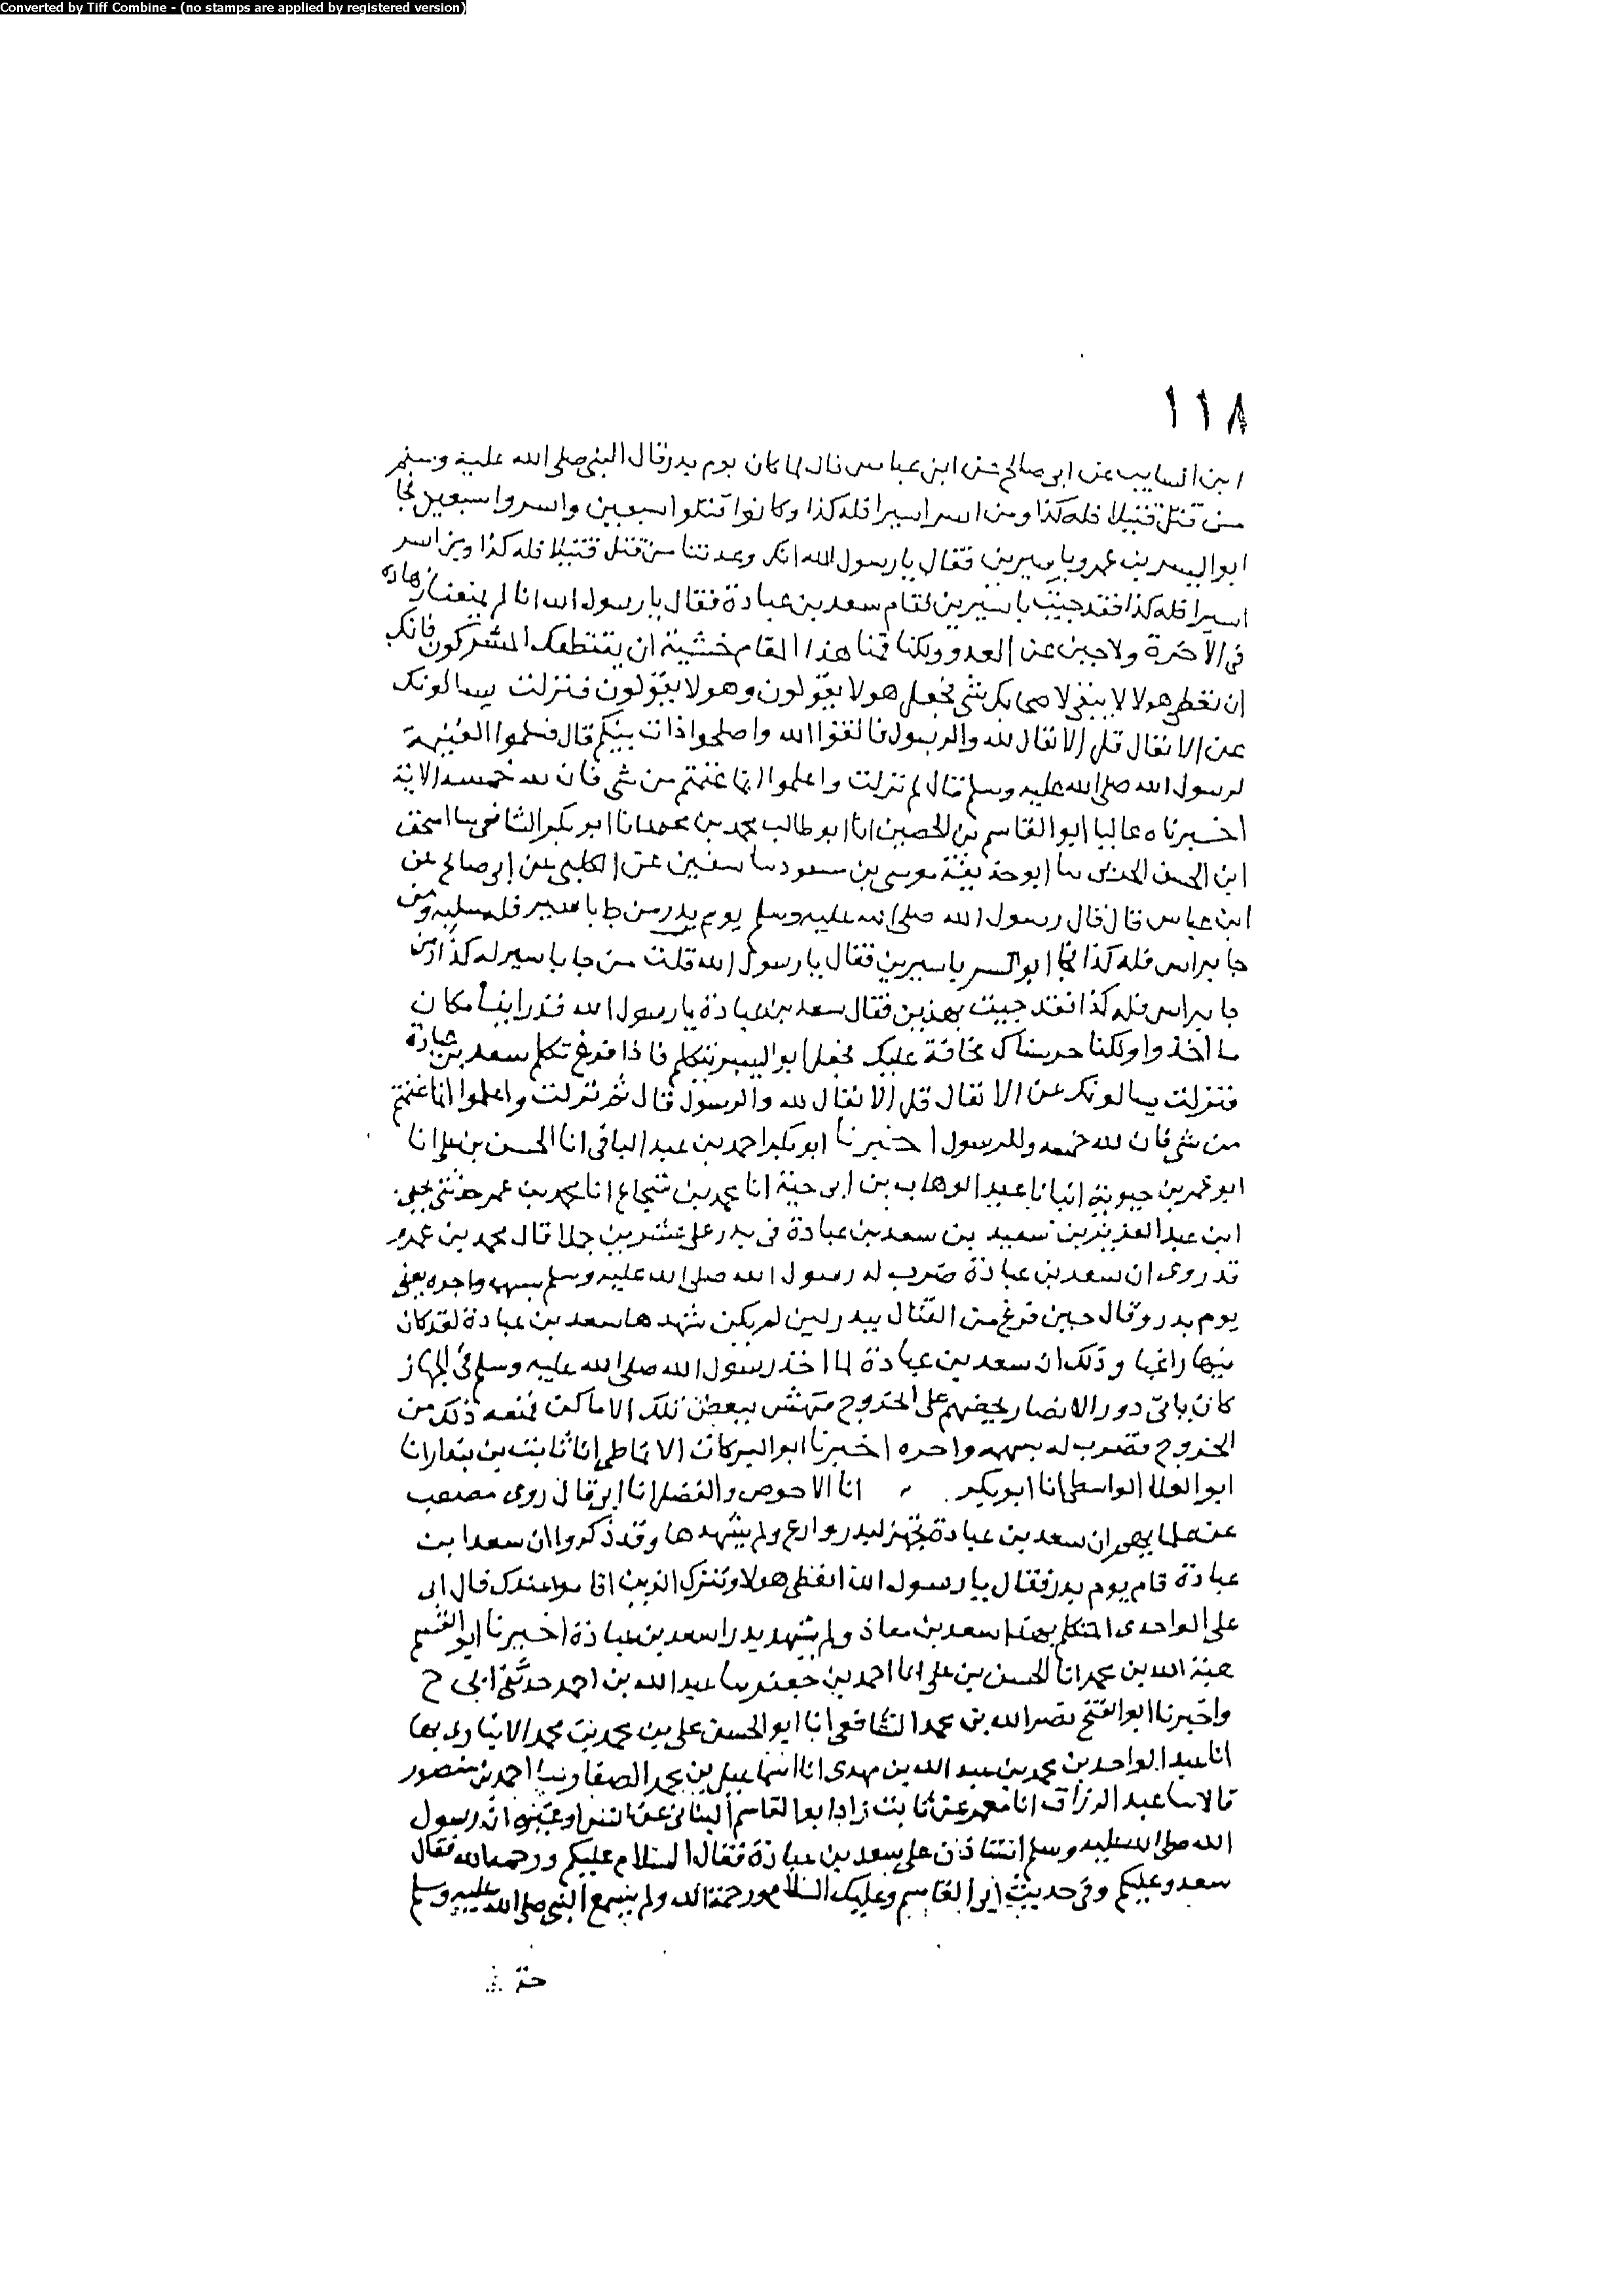 Converted by Tiff Combine - (no stamps are applied by registered version)
١١٨
ابن السايب عن ابى صالح عن ابن عباس قال لما كان يوم بدر قال النبى صلى الله عليه وسلم
من قتل قتيلا فله كذا ومن اسر اسيرا فله كذا وكانوا قتلوا سبعين واسروا سبعين فجا
ابو اليسر بن عمرو باسيرين فقال يا رسول الله انك وعدتنا من قتل قتيلا فله كذا ومن اسر
اسيرا فله كذا فقد جيت باسيرين فقام سعد بن عبادة فقال يا رسول الله انا لم يمنعنا زهادة
فى الآخرة ولا جبن عن العدو ولكنا قمنا هذا المقام خشية ان يقتطعك المشركون فانك
ان تعطى هولا لا يبقى لاصحابك شى فجعل هولا يقولون وهولا يقولون فنزلت يسالونك
عن الانفال قل الانفال لله والرسول فاتقوا الله واصلحوا ذات بينكم قال فسلموا الغنيمة
لرسول الله صلى الله عليه وسلم قال ثم نزلت واعلموا انما غنمتم من شى فان لله خمسه الاية
اخبرناه عاليا ابو القاسم بن الحصين انا ابو طالب محمد بن محمد انا ابو بكر الشافعى سا اسحق
ابن الحسن الحربى سا ابو حذيفة موسى بن مسعود سا سفين عن الكلبى عن ابى صالح عن
ابن عباس قال قال رسول الله صلى الله عليه وسلم يوم بدر من جا باسير فله سلبه ومن
جا براس فله كذا فجا ابو اليسر باسيرين فقال يا رسول الله قلت من جا باسير له كذا ومن
جا براس فله كذا فقد جيت بهذين فقال سعد بن عبادة يا رسول الله قد راينا مكان
ما اخذوا ولكنا حرسناك مخافة عليك فجعل ابو اليسر يتكلم فاذا فرغ تكلم سعد بن عبادة
فنزلت يسالونك عن الانفال قل الانفال لله والرسول قال ثم نزلت واعلموا انما غنمتم
من شى فان لله خمسه وللرسول اخبرنا ابو بكر احمد بن عبد الباقى انا الحسن بن على انا
ابو عمر بن حيوية انبانا عبد الوهاب بن ابى حية انا محمد بن شجاع انا محمد بن عمر حدثنى يحيى
ابن عبد العزيز بن سعيد بن سعد بن عبادة فى بدر على عشرين جملا قال محمد بن عمرو
قد روى ان سعد بن عبادة ضرب له رسول الله صلى الله عليه وسلم بسهمه واجره يعنى
يوم بدر وقال حين فرغ من القتال ببدر لين لم يكن شهدها سعد بن عبادة لقد كان
فيها راغبا وذلك ان سعد بن عبادة لما اخذ رسول الله صلى الله عليه وسلم فى الجهاز
كان ياتى دور الانصار يحضهم على الخروج فنهش ببعض تلك الاماكن فمنعه ذلك من
الخروج فضرب له بسهمه واجره اخبرنا ابو البركات الانماطى انا ثابت بن بندار انا
ابو العلا الواسطى انا ابو بكر انا الاحوص والفضل انا ابى قال روى مصعب
ان سعد بن عبادة تجهز لبدر ولم يشهدها وقد ذكروا ان سعد ابن
عبادة قام يوم بدر فقال يا رسول الله اتعطى هولا وتترك الذين اقاموا عندك قال ابى
على الواحدى المتكلم بهذا سعد بن معاذ ولم يشهد بدرا سعد بن عبادة اخبرنا ابو القسم
هبة الله بن محمد انا الحسن بن على انا احمد بن جعفر سا عبد الله بن احمد حدثنى ابى ح
واخبرنا ابو الفتح نصر الله بن محمد الشافعى انا ابو الحسن على بن محمد بن محمد الانبارى بها
انا عبد الواحد بن محمد بن عبد الله بن مهدى انا اسماعيل بن محمد الصفار نا احمد بن منصور
قالا سا عبد الرزاق انا معمر عن ثابت زاد ابو القاسم البنانى عن انس او غيره ان رسول
الله صلى الله عليه وسلم استاذن على سعد بن عبادة فقال السلام عليكم ورحمة الله فقال
سعد وعليكم وفى حديث ابى القاسم وعليك السلام ورحمة الله ولم يسمع النبى صلى الله عليه وسلم
حتى